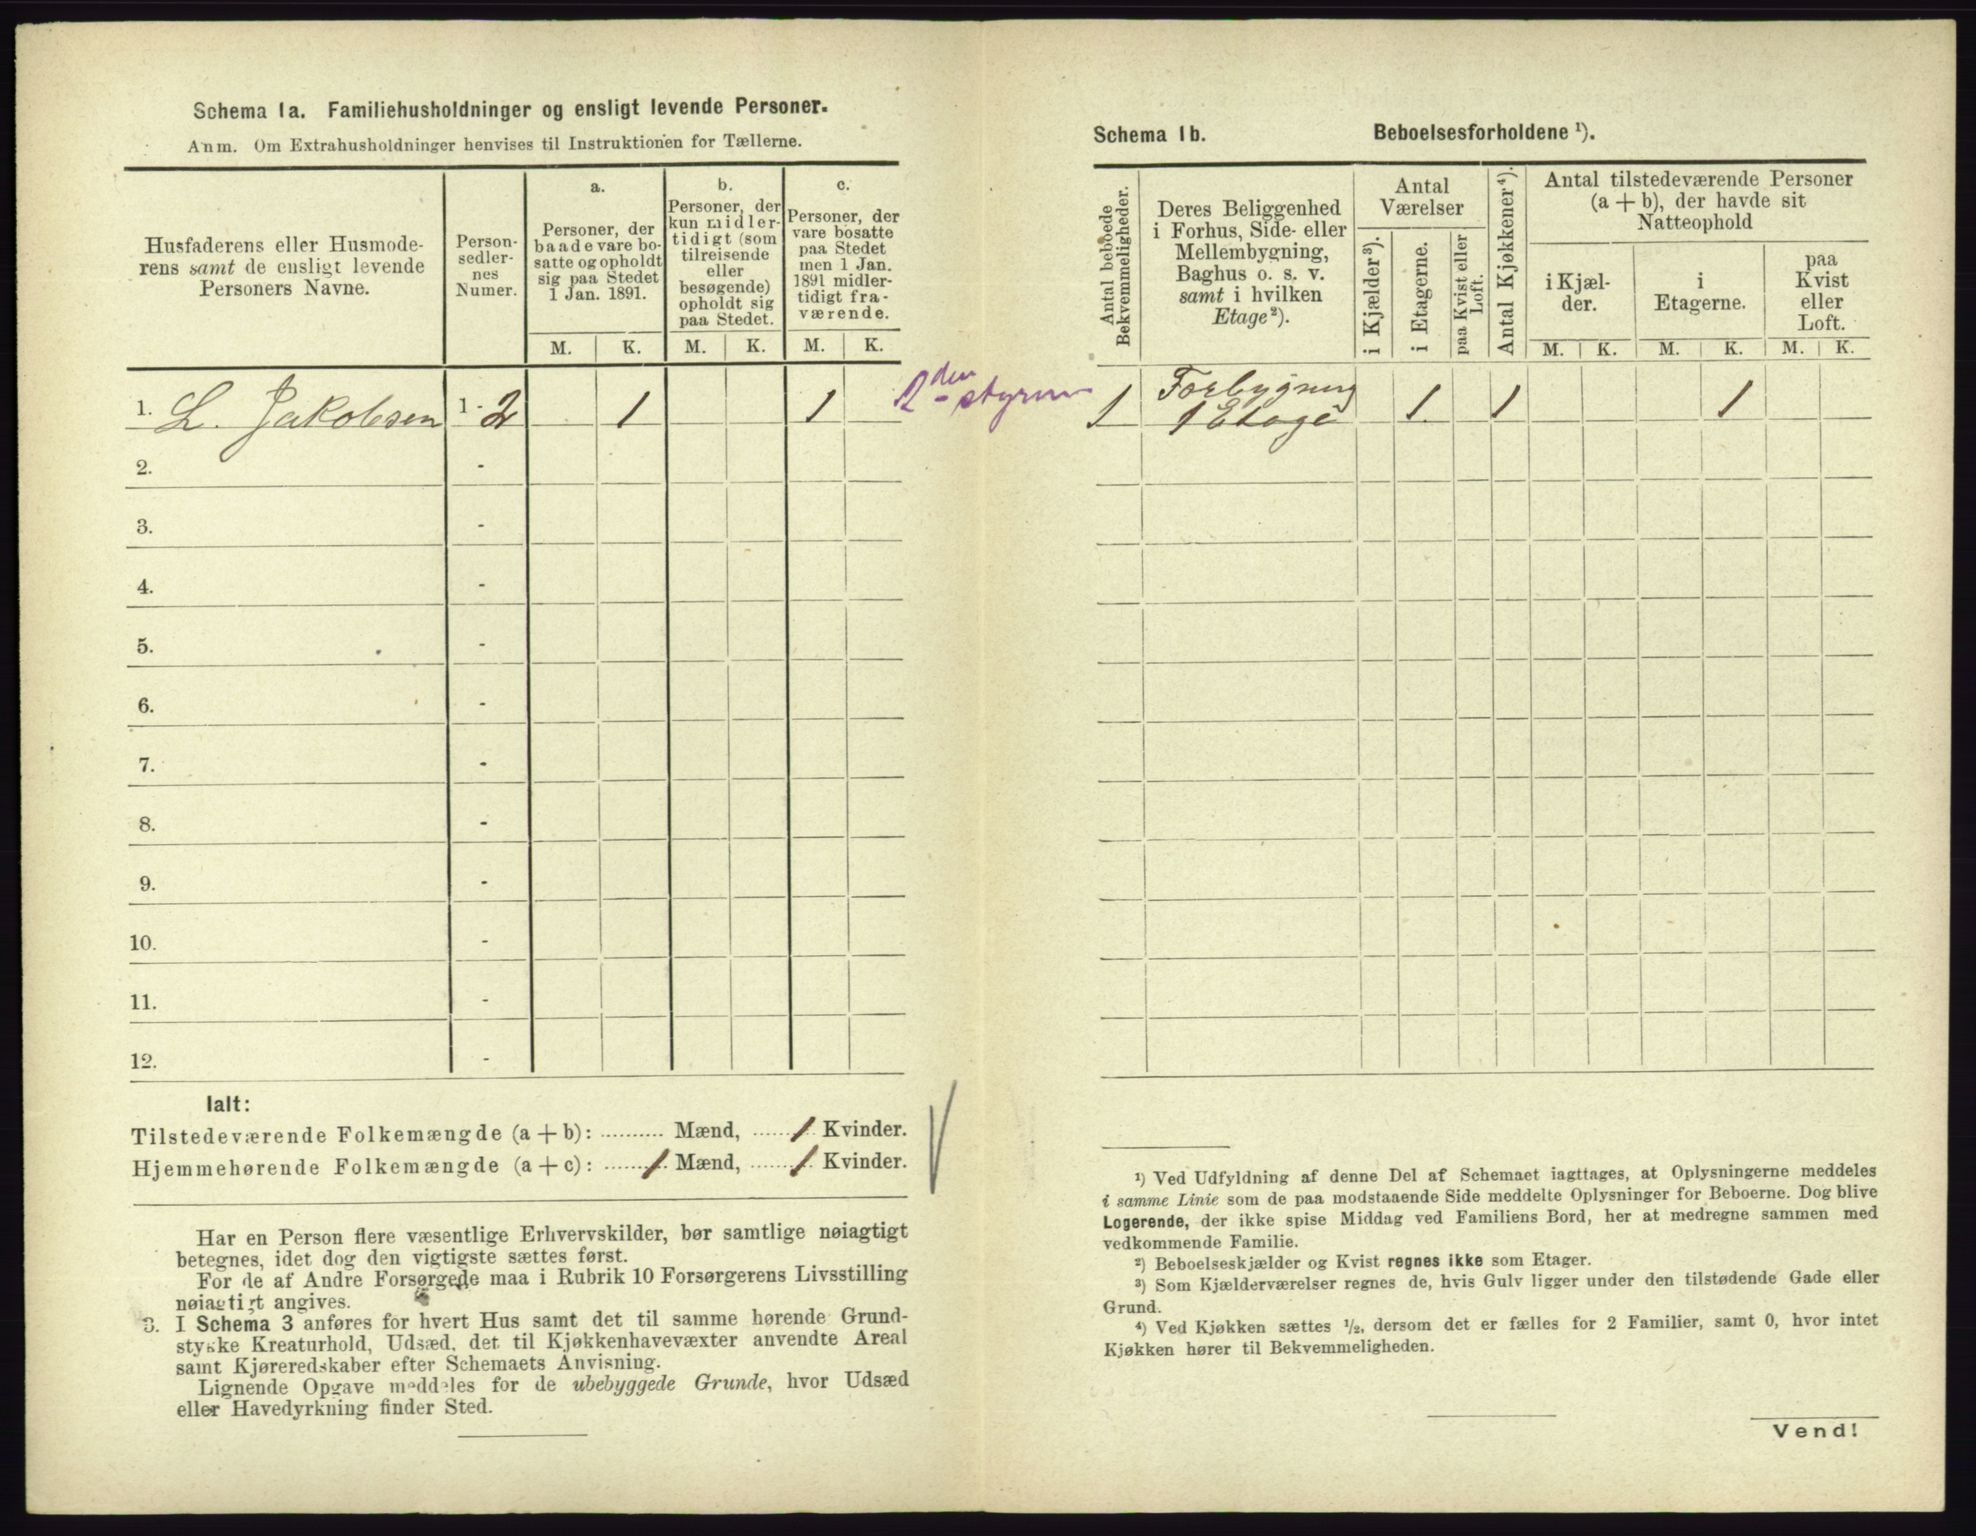 Schema 1a. Familiehusholdninger og ensligt levende Personer.
Anm. Om Extrahusholdninger henvises til Instruktionen for Tællerne.
Husfaderens eller Husmode-
rens samt de ensligt levende
Personers Navne.
Person-
sedler-
nes
Numer.
a.
Personer, der
baade vare bo-
satte og opholdt
sig paa Stedet
1 Jan. 1891.
b.
Personer, der
kun midler-
tidigt (som
tilreisende
eller
besøgende)
opholdt sig
paa Stedet.
c.
Personer, der
vare bosatte
paa Stedet
men 1 Jan.
1891 midler-
tidigt fra-
værende.
M. K. M. K. M. K.
1. L. Jakobsen 1 - 2 1 1 2den styrm
2. -
3. -
4. -
5. -
6. -
7. -
8. -
9. -
10. -
11. -
12. -
Ialt:
Tilstedeværende Folkemængde (a + b): .......... Mænd, ...... 1 Kvinder.
Hjemmehørende Folkemængde (a + c): ...... 1 Mænd, ...... 1 Kvinder.
Har en Person flere væsentlige Erhvervskilder, bør samtlige nøiagtigt
betegnes, idet dog den vigtigste sættes først.
For de af Andre Forsørgede maa i Rubrik 10 Forsørgerens Livsstilling
nøiagtigt angives.
3. I Schema 3 anføres for hvert Hus samt det til samme hørende Grund-
stykke Kreaturhold, Udsæd, det til Kjøkkenhavevæxter anvendte Areal
samt Kjøreredskaber efter Schemaets Anvisning.
Lignende Opgave meddeles for de ubebyggede Grunde, hvor Udsæd
eller Havedyrkning finder Sted.
Schema 1b. Beboelsesforholdene ¹).
Antal beboede
Bekvemmeligheder.
Deres Beliggenhed
i Forhus, Side- eller
Mellembygning,
Baghus o. s. v.
samt i hvilken
Etage²).
Antal
Værelser
i Kjælder³).
i Etagerne.
paa Kvist eller
Loft.
Antal Kjøkkener⁴).
Antal tilstedeværende Personer
(a + b), der havde sit
Natteophold
i Kjæl-
der.
i
Etagerne.
paa
Kvist
eller
Loft.
M. K. M. K. M. K.
1 Forbygning
1 Etage 1 1 1
¹) Ved Udfyldning af denne Del af Schemaet iagttages, at Oplysningerne meddeles
i samme Linie som de paa modstaaende Side meddelte Oplysninger for Beboerne. Dog blive
Logerende, der ikke spise Middag ved Familiens Bord, her at medregne sammen med
vedkommende Familie.
²) Beboelseskjælder og Kvist regnes ikke som Etager.
³) Som Kjælderværelser regnes de, hvis Gulv ligger under den tilstødende Gade eller
Grund.
⁴) Ved Kjøkken sættes ¹/₂, dersom det er fælles for 2 Familier, samt 0, hvor intet
Kjøkken hører til Bekvemmeligheden.
Vend!